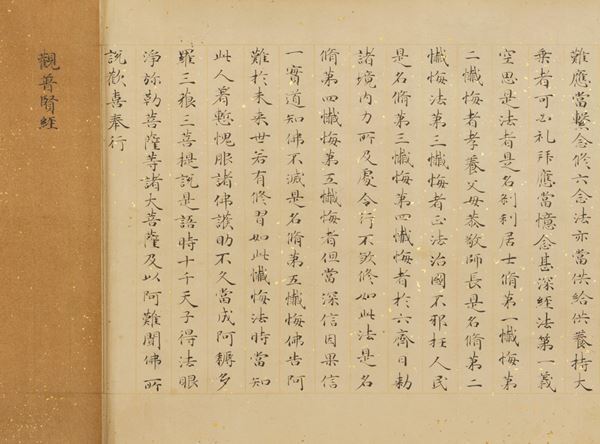 難應當繫念修六念法亦當供給供養持大
乘者可必礼拜應當憶念甚深經法第一義
空思是法者是名刹利居士脩第一懺悔第
二懺悔者孝養父母恭敬師長是名脩第二
懺悔法第三懺悔者正法治國不邪枉人民
是名脩第三懺悔第四懺悔者於六齋日勅
諸境內力所及處令行不煞修如此法是名
脩第四懺悔第五懺悔者但當深信因果信
一實道知佛不滅是名脩第五懺悔佛告阿
難於未來世若有修習如此懺悔法時當知
此人着慙愧服諸佛護助不久當成阿耨多
羅三藐三菩提說是語時十千天子得法眼
淨弥勒菩薩等諸大菩薩及以阿難聞佛所
說歡喜奉行
觀普賢經